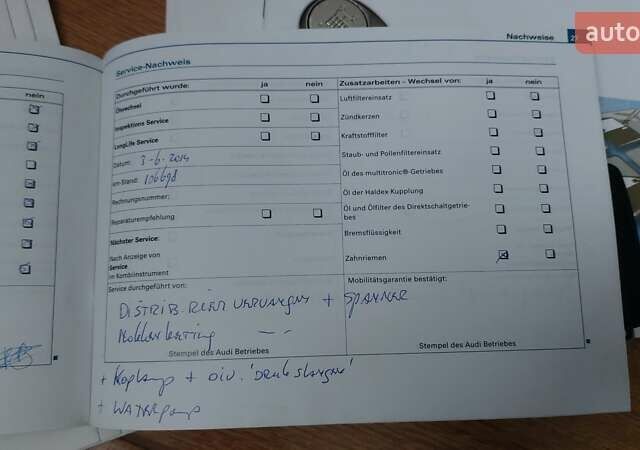 Nachweise 2
auto
nein
Service-Nachweis
Durchgeführt wurde: ja nein
Ölwechsel
Inspektions Service
LongLife Service
Datum: 3-6-2014
km-Stand:
Rechnungsnummer:
Reparaturempfehlung
Nächster Service:
Nach Anzeige von
Service
im Kombiinstrument
Service durchgeführt von:
Zusatzarbeiten - Wechsel von: ja nein
Luftfiltereinsatz
Zündkerzen
Kraftstofffilter
Staub- und Pollenfiltereinsatz
Öl des multitronic®-Getriebes
Öl der Haldex Kupplung
Öl und Ölfilter des Direktschaltgetrie-
bes
Bremsflüssigkeit
Zahnriemen
Mobilitätsgarantie bestätigt:
DISTRIB RIEM VERVANGEN + SPANNER
Stempel des Audi Betriebes
Stempel des Audi Betriebes
+ + DIV.
+ WATERPOMP